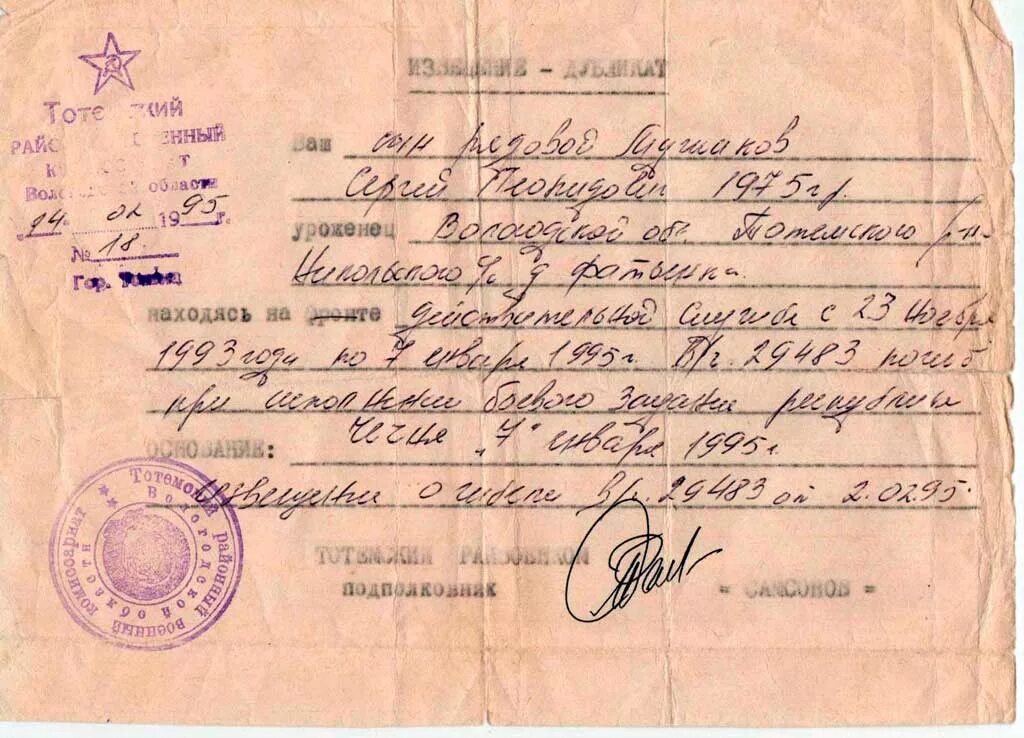 ИЗВЕЩЕНИЕ - ДУБЛИКАТ
Тотемский
РАЙОННЫЙ ВОЕННЫЙ
Вологодской области
14 02 1995 г.
№ 18.
Гор.
Ваш сын рядовой
Сергей Леонидович 1975 г.р.
уроженец Вологодской об. Тотемского р-н
Никольского с/с д
находясь на фронте действительной службе с 23 ноября
1993 года по 7 января 1995г. В/ч. 29483 погиб
при исполнении боевого задания республика
Чечня "7" января 1995г
ОСНОВАНИЕ:
извещения о гибели в/ч. 29483 от 2.02.95.
ТОТЕМСКИЙ РАЙВОЕНКОМ
ПОДПОЛКОВНИК = САМСОНОВ =
Тотемский районный военный комиссариат
Вологодской области